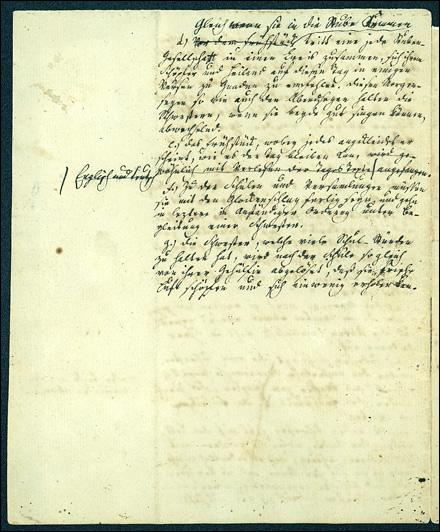 Gleich wenn sie in die Stube kommen
d.) Vor dem Frühstück tritt eine jede Stuben-
Gesellschaft in einen Creis zusammen, sich ihrem
Schöpfer und Heiland auf diesen Tag in einigen
Versen zu Gnaden zu empfehlen, diesen Morgen-
segen so wie auch den Abendsegen halten die
Schwestern, wenn sie beyde gut singen können,
abwechselnd.
e.) das Frühstück, wobey jedes angekleidet er-
scheint, wie es den Tag bleiben kan, wird ge-
/ Englisch und deutsch
wöhnlich mit Verlesen der Tages Texte / angefangen.
f.) Zu den Schulen und Versammlungen müssen
sie mit dem Glockenschlag fertig seyn, und gehn
in leztere in anständiger Ordnung unter Be-
gleitung einer Schwester.
g.) die Schwester, welche viele Schul Stunden
zu halten hat, wird nach der Schule so gleich
von ihrer Gehülfin abgelöset, daß sie frische
Luft schöpfen und sich ein wenig erholen kan.